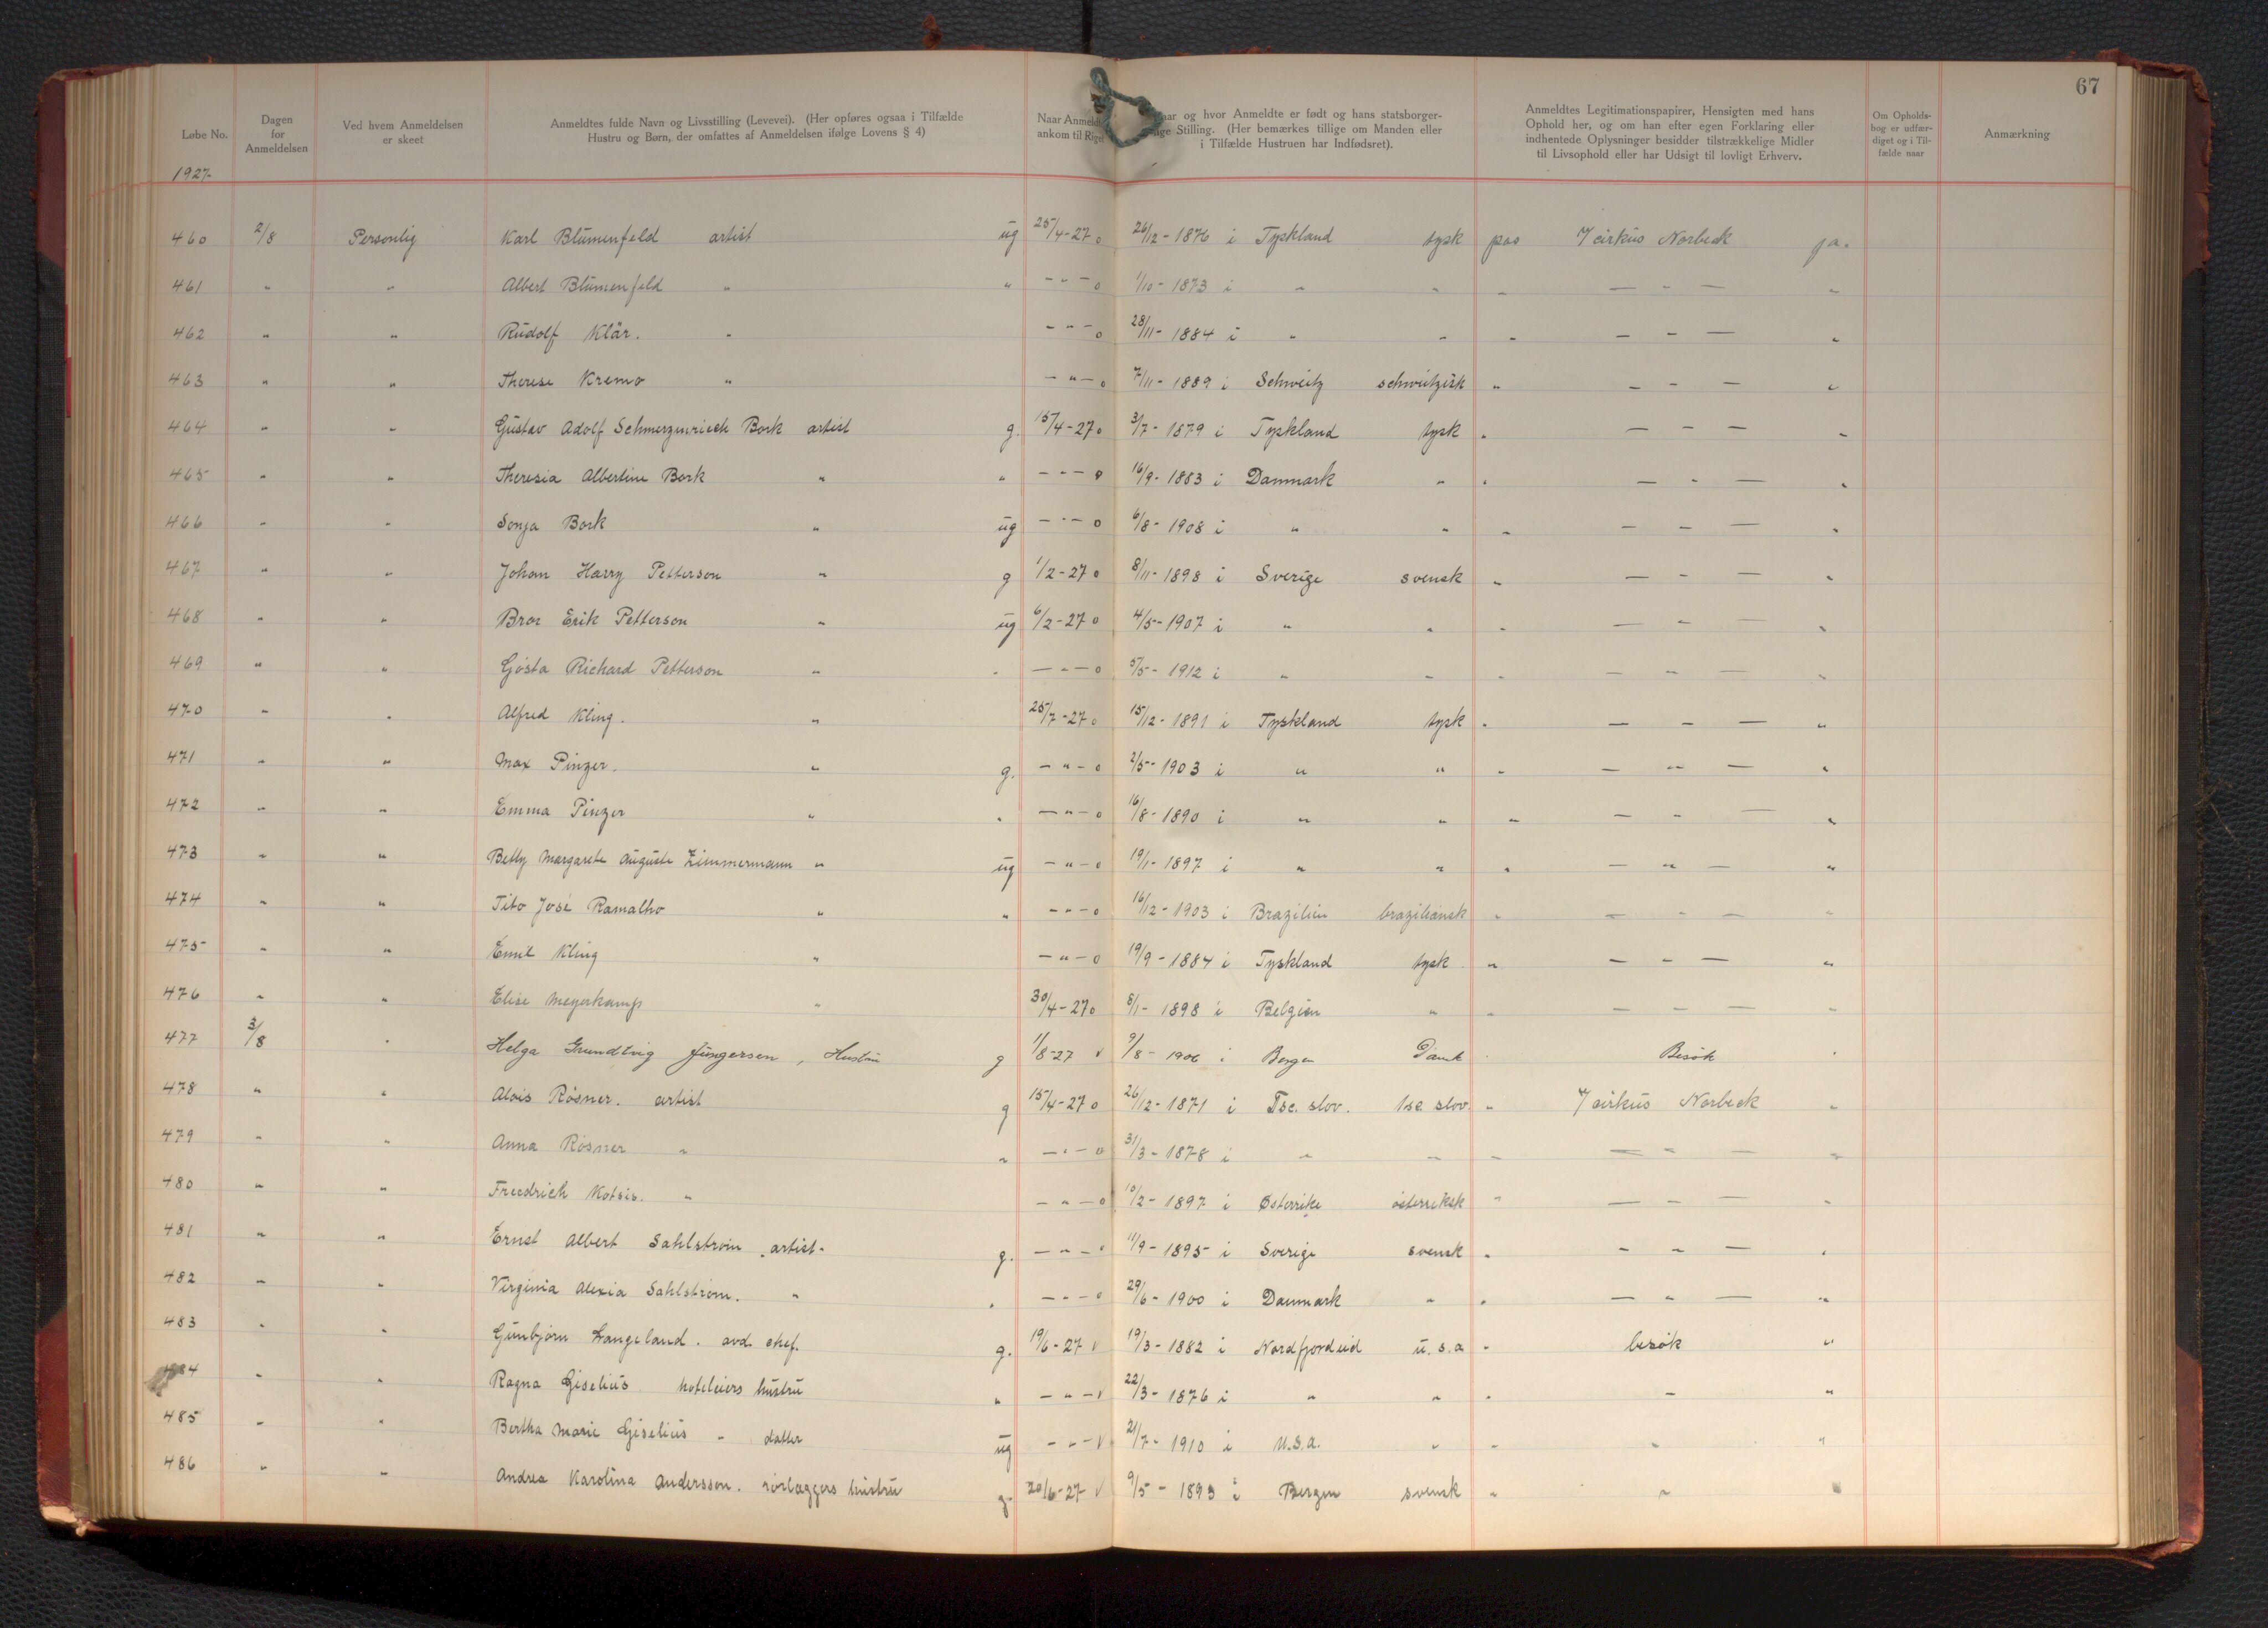 67
Løbe No.
Dagen for Anmeldelsen
Ved hvem Anmeldelsen er skeet
Anmeldtes fulde Navn og Livsstilling (Levevei). (Her opføres ogsaa i Tilfælde Hustru og Børn, der omfattes af Anmeldelsen ifølge Lovens § 4)
Naar Anmeldte ankom til Riget
og hvor Anmeldte er født og hans statsborger- Stilling. (Her bemærkes tillige om Manden eller i Tilfælde Hustruen har Indfødsret).
Anmeldtes Legitimationspapirer, Hensigten med hans Ophold her, og om han efter egen Forklaring eller indhentede Oplysninger besidder tilstrækkelige Midler til Livsophold eller har Udsigt til lovligt Erhverv.
Om Opholds- bog er udfær- diget og i Til- fælde naar
Anmærkning
1927-
460 2/8 Personlig Karl Blumenfeld artist ug 25/4-27 o 26/12-1876 i Tyskland tysk pas I cirkus Norbeck ja.
461 " " Albert Blumenfeld " " - " - o 1/10-1873 i " " " — " — "
462 " " Rudolf Klär. " - " - o 28/11-1884 i " " " — " — "
463 " " Therese Kremo " - " - o 7/11-1889 i Schweitz schweitzisk " — " — "
464 " " Gustav Adolf Bork artist g. 15/4-27 o 3/7-1879 i Tyskland tysk " — " — "
465 " " Theresia Albertine Bork " " - " - o 16/9-1883 i Danmark " " — " — "
466 " " Sonja Bork " ug - " - o 6/8-1908 i " " " — " — "
467 " " Johan Harry Petterson " g 1/2-27 o 8/11-1898 i Sverige svensk " — " — "
468 " " Bror Erik Petterson " ug 6/2-27 o 4/5-1907 i " " " — " — "
469 " " Gösta Richard Petterson " " - " - o 5/5-1912 i " " " — " — "
470 " " Alfred Kling. " 25/7-27 o 15/12-1891 i Tyskland tysk " — " — "
471 " " Max Pinzer. " g. - " - o 2/5-1903 i " " " — " — "
472 " " Emma Pinzer " " - " - o 16/8-1890 i " " " — " — "
473 " " Betty Margarete Auguste Zimmermann " ug - " - o 19/1-1897 i " " " — " — "
474 " " Tito José Ramalho " " - " - o 16/12-1903 i Brazilien braziliansk " — " — "
475 " " Emil Kling " - " - o 19/9-1884 i Tyskland tysk " — " — "
476 " " Elise Meyerkamp " 30/4-27 o 8/1-1898 i Belgien " " — " — "
477 3/8 " Helga Grundtvig Jungersen, Hustru g 1/8-27 v 9/8-1906 i Bergen Dansk " Besök "
478 " " Alois Rösner. artist g 15/4-27 o 26/12-1871 i Tsc. slov. tsc slov. " I cirkus Norbeck "
479 " " Anna Rösner " " - " - o 31/3-1878 i " " " — " — "
480 " " Freedrich Kotsis. " - " - o 10/2-1897 i Østerrike österriksk " — " — "
481 " " Ernst Albert Sahlström artist. g. - " - o 11/9-1895 i Sverige svensk " — " — "
482 " " Virginia Alexia Sahlström. " " - " - o 29/6-1900 i Danmark " " — " — "
483 " " Gunbjørn Langeland. avd. chef. g. 19/6-27 v 19/3-1882 i Nordfjordeid u.s.a " besök "
484 " " Ragna Giselius hoteleiers hustru " - " - v 22/3-1876 i " " " " "
485 " " Bertha Marie Giselius " datter ug - " - v 21/7-1910 i U.S.A. " " " "
486 " " Andrea Karolina Andersson. rørlæggers hustru g. 20/6-27 v 9/5-1893 i Bergen svensk " " "